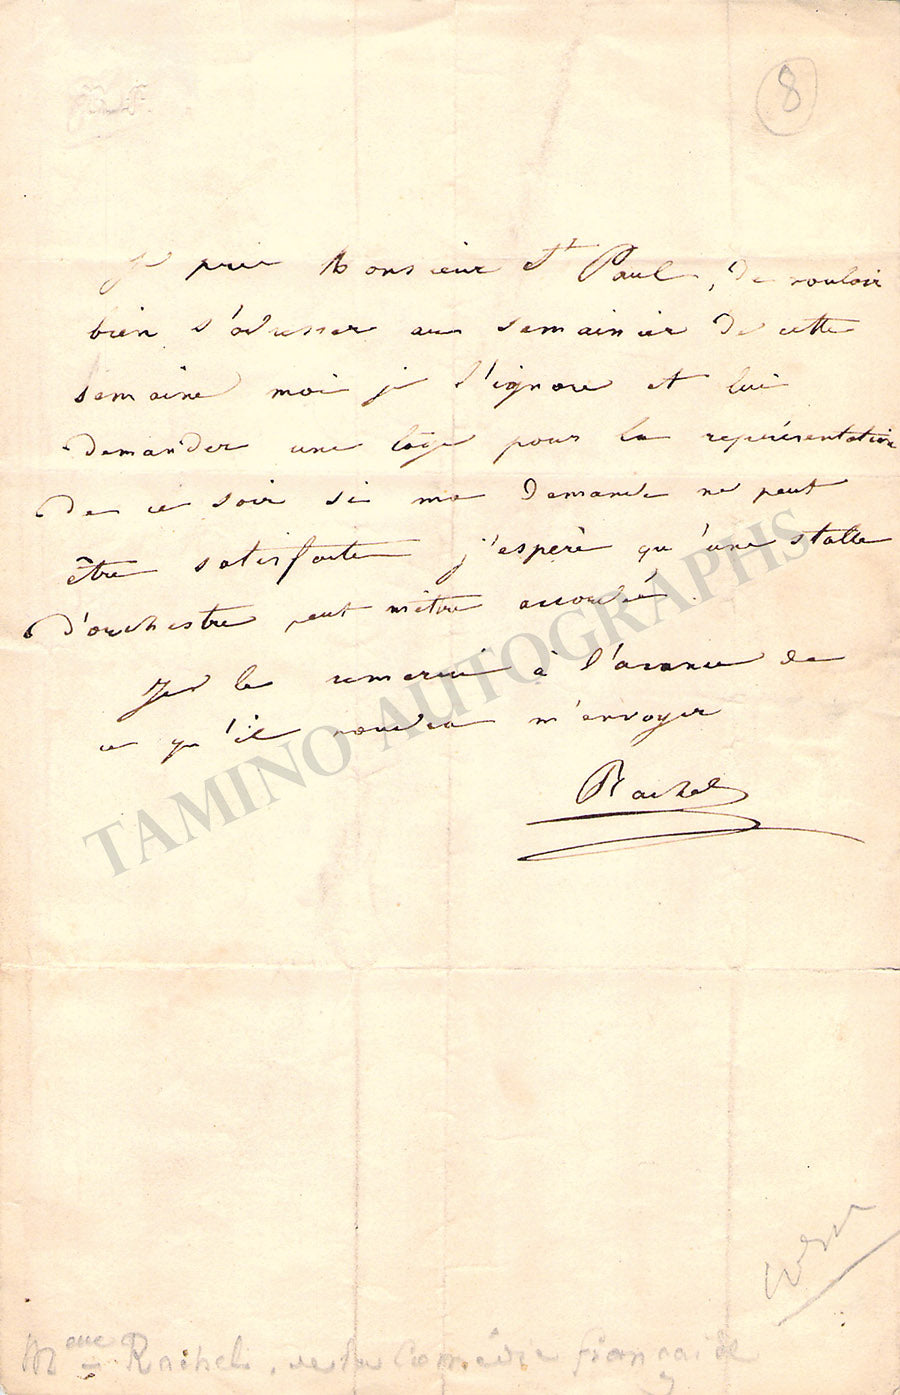 8
Je prie Monsieur St Paul, de vouloir
bien s'adresser au Semainier de cette
Semaine moi je l'ignore et lui
demander une loge pour la représentation
de ce soir si ma demande ne peut
être satisfaite j'espère qu'une stalle
d'orchestre peut m'être accordée.
Je le remercie à l'avance de
ce qu'il voudra m'envoyer
Rachel
TAMINO AUTOGRAPHS
Mme Rachel, de la Comédie française